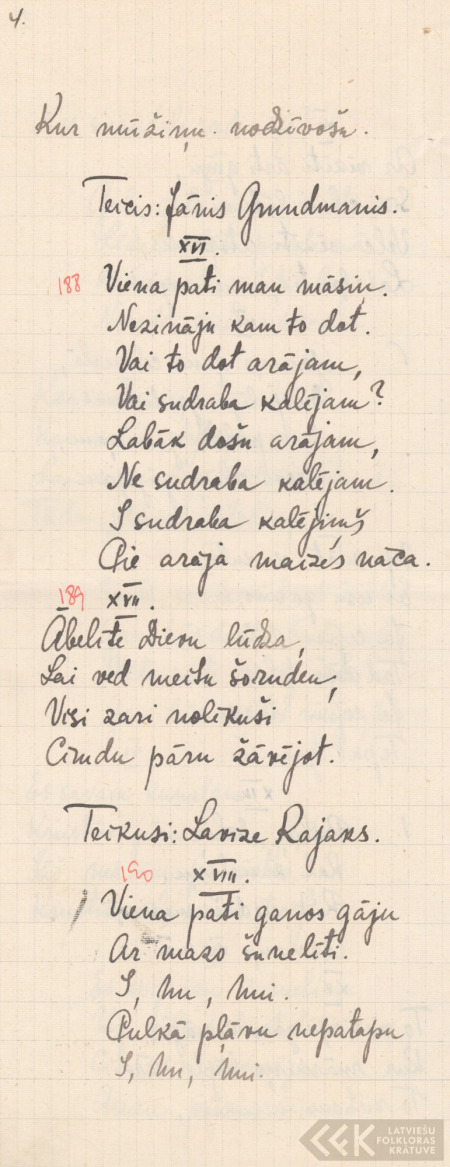 4.
Kur mūžiņu nodzīvošu.
Teicis: Jānis Grundmanis.
XVI.
188 Viena pati man māsiņ.
Nezināju kam to dot.
Vai to dot arājam,
Vai sudraba kalējam?
Labāk došu arājam,
Ne sudraba kalējam.
I sudraba kalējiņš
Pie arāja maizēs nāca.
189 XVII.
Ābelīte Dievu lūdza,
Lai ved meitu šoruden,
Visi zari nolīkuši
Cimdu pāru žāvējot.
Teikusi: Lavize Rajaks.
190 XVIII.
Viena pati ganos gāju
Ar mazo šunelīti.
I, hu, hui.
Pulkā pļāvu nepatapu
I, hu, hui.
LATVIEŠU
FOLKLORAS
KRĀTUVE